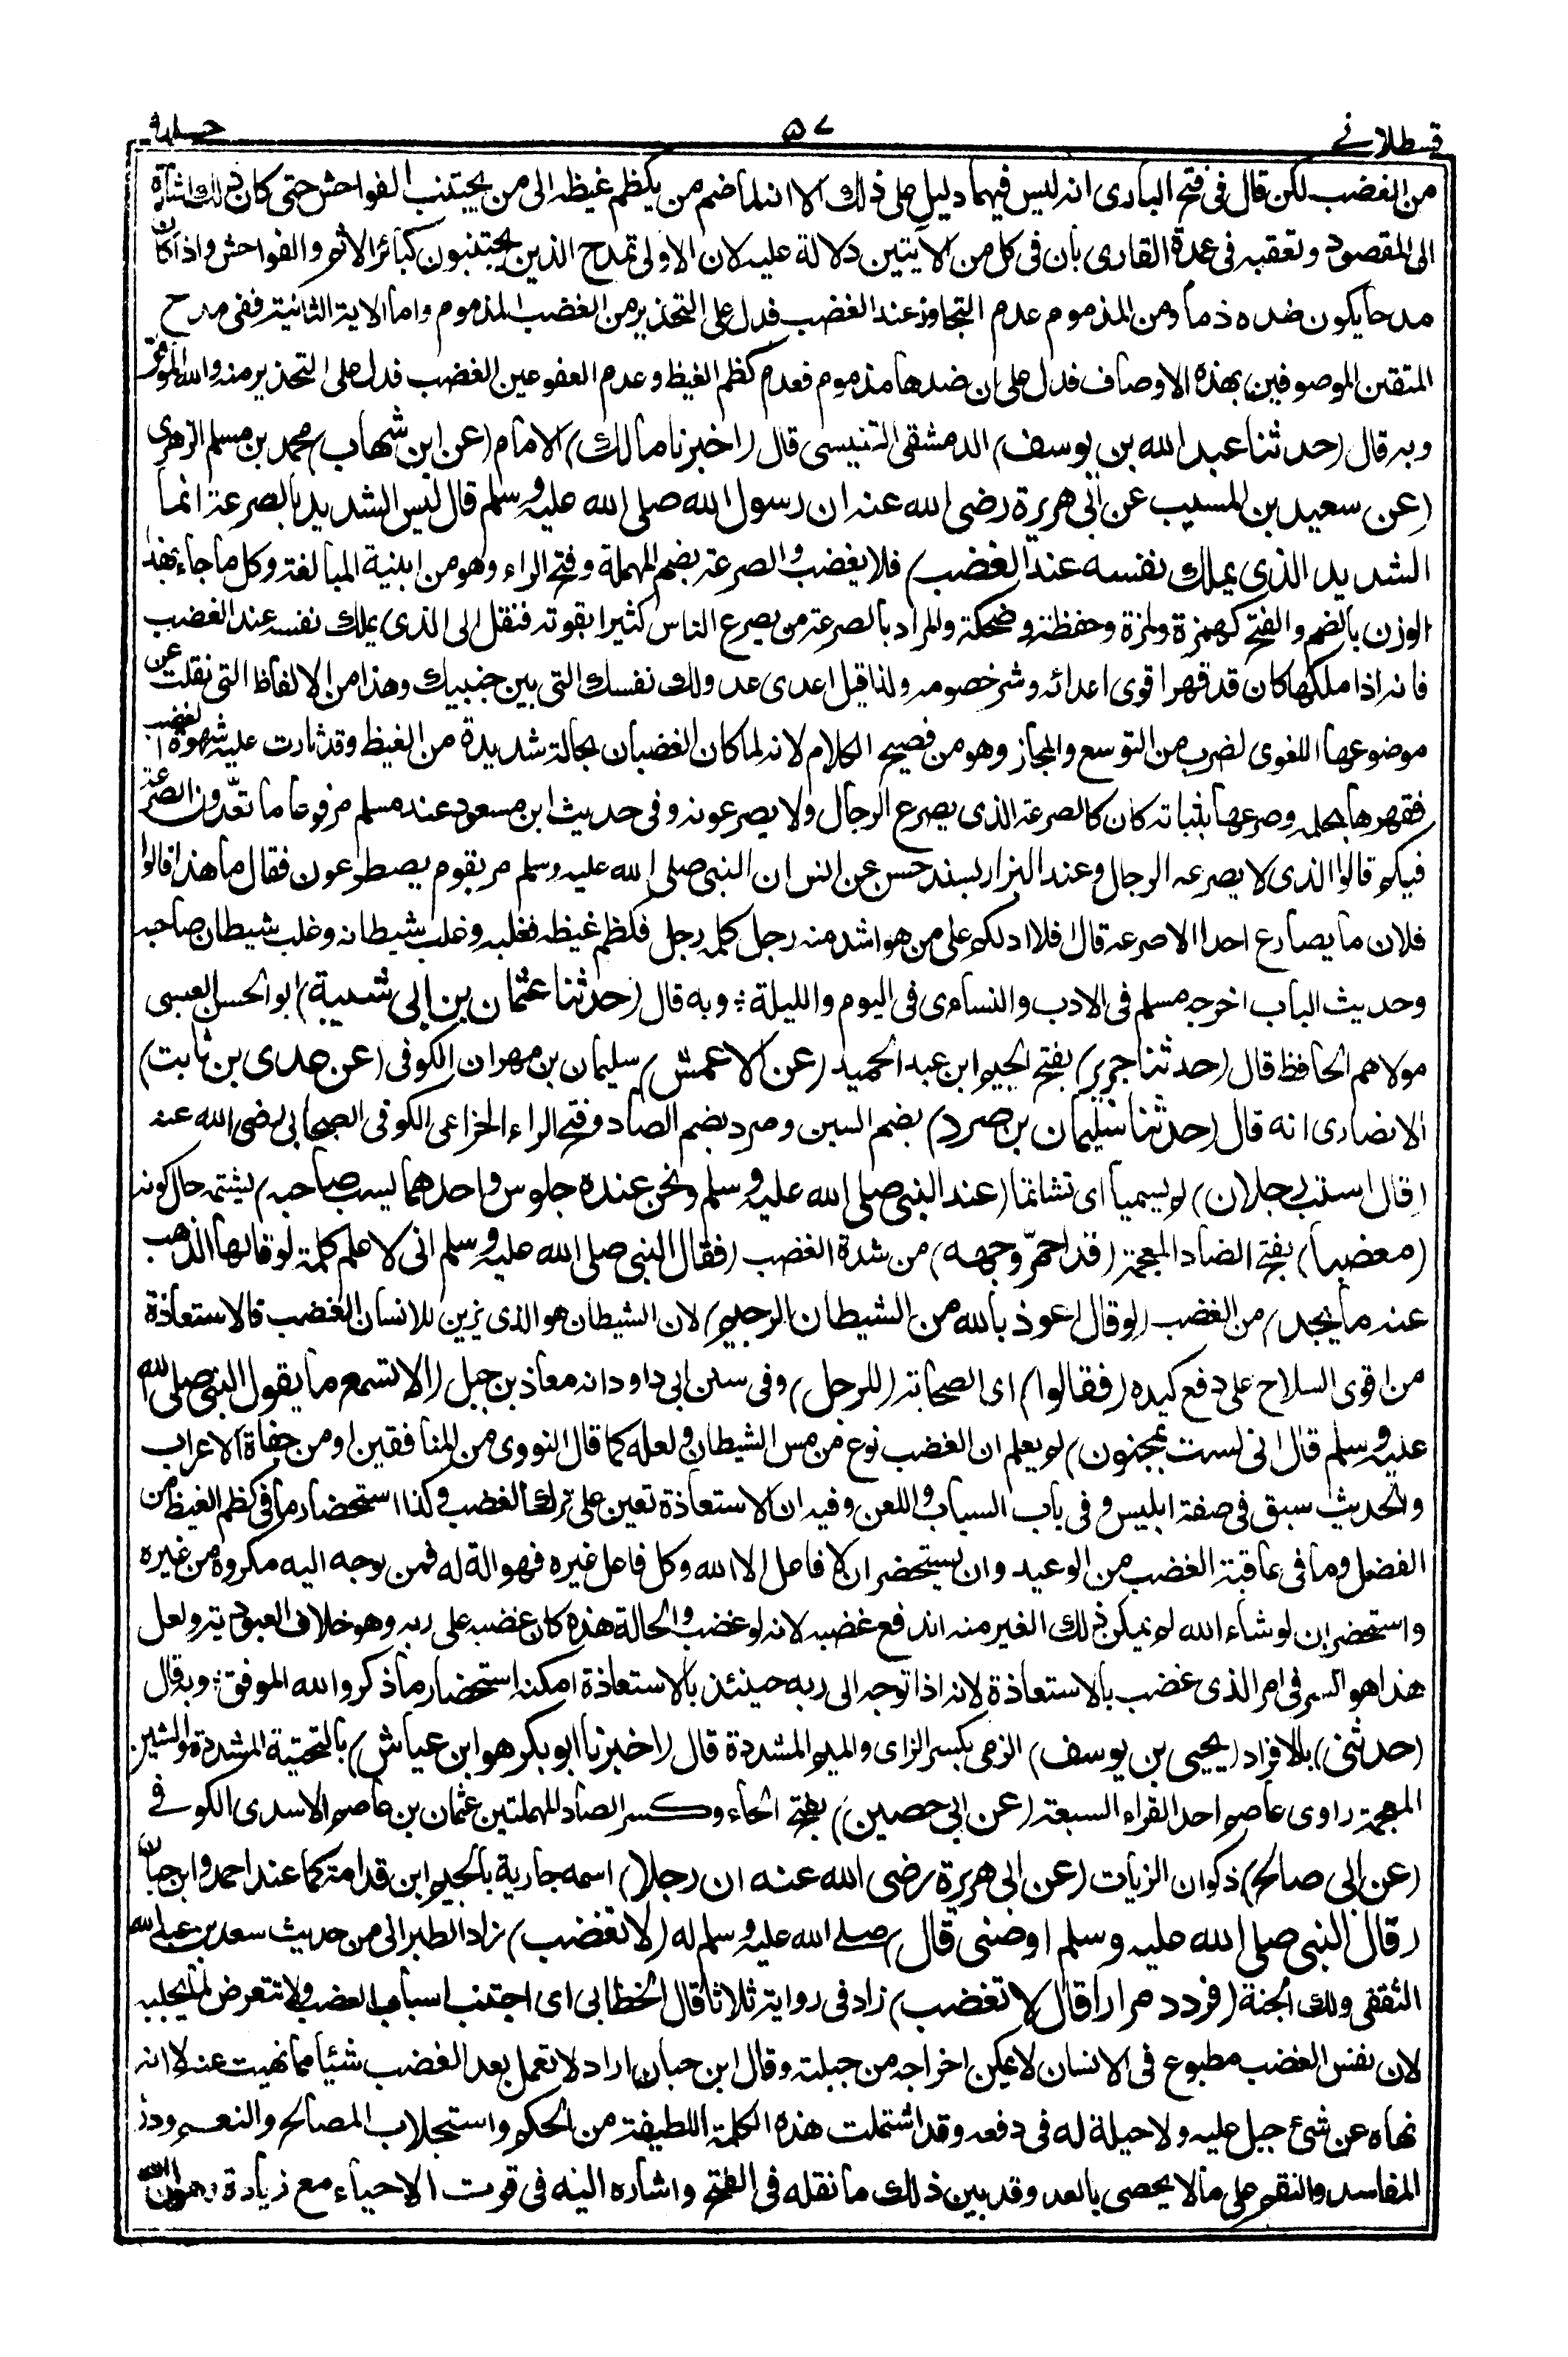 قسطلانے ٥٧ جلد٩
من الغضب لكن قال فى فتح البارى انه ليس فيهما دليل على ذلك الا انه لما ضم من يكظم غيظه الى من يجتنب الفواحش حتى كان ذلك اشارة
الى المقصود وتعقبه فى عمدة القارى بان فى كل من الايتين دلالة عليه لان الاولى تمدح الذين يجتنبون كبائر الاثم والفواحش واذا كان
مدحا يكون ضده ذما ومن المذموم عدم التجاوز عند الغضب فدل على التحذير من الغضب المذموم واما الاية الثانية ففى مدح
المتقين الموصوفين بهذه الاوصاف فدل على ان ضدها مذموم فعدم كظم الغيظ وعدم العفو عين الغضب فدل على التحذير منه والله الموفق
وبه قال (حدثنا عبد الله بن يوسف) الدمشقى التنيسى قال (اخبرنا مالك) الامام (عن ابن شهاب) محمد بن مسلم الزهرى
(عن سعيد بن المسيب عن ابى هريرة رضى الله عنه ان رسول الله صلى الله عليه وسلم قال ليس الشديد بالصرعة انما
الشديد الذى يملك نفسه عند الغضب) فلا يغضب والصرعة بضم المهملة وفتح الراء وهو من ابنية المبالغة وكل ما جاء بهذا
الوزن بالضم والفتح كهمزة ولمزة وحفظة وضحكة والمراد بالصرعة من يصرع الناس كثيرا بقوته فنقل الى الذى يملك نفسه عند الغضب
فانه اذا ملكها كان قد قهر اقوى اعدائه وشر خصومه ولذا قيل اعدى عدو لك نفسك التى بين جنبيك وهذا من الالفاظ التى نقلت عن
موضوعها اللغوى لضرب من التوسع والمجاز وهو من فصيح الكلام لانه لما كان الغضبان بحالة شديدة من الغيظ وقد ثارت عليه شهوة الغضب
فقهرها بحلمه وصرعها بثباته كان كالصرعة الذى يصرع الرجال ولا يصرعونه وفى حديث ابن مسعود عند مسلم مرفوعا ما تعدّون الصرعة
فيكم قالوا الذى لا يصرعه الرجال وعند البزار بسند حسن عن انس ان النبى صلى الله عليه وسلم مر بقوم يصطرعون فقال ما هذا قالوا
فلان ما يصارع احدا الا صرعه قال افلا ادلكم على من هو اشد منه رجل كلمه رجل فكظم غيظه فغلبه وغلب شيطانه وغلب شيطان صاحبه
وحديث الباب اخرجه مسلم فى الادب والنساءى فى اليوم والليلة ؛ وبه قال (حدثنا عثمان بن ابى شيبة) ابو الحسن العبسى
مولاهم الحافظ قال (حدثنا جرير) بفتح الجيم ابن عبد الحميد (عن الاعمش) سليمان بن مهران الكوفى (عن عدى بن ثابت)
الانصارى انه قال (حدثنا سليمان بن صرد) بضم السين وصرد بضم الصاد وفتح الراء الخزاعى الكوفى الصحابى رضى الله عنه
(قال استب رجلان) لم يسميا اى تشاتما (عند النبى صلى الله عليه وسلم ونحن عنده جلوس واحدهما يسب صاحبه) يشتمه حال كونه
(مغضبا) بفتح الضاد المعجمة (قد احمرّ وجهه) من شدة الغضب (فقال النبى صلى الله عليه وسلم انى لاعلم كلمة لو قالها لذهب
عنه ما يجد) من الغضب (لو قال اعوذ بالله من الشيطان الرجيم) لان الشيطان هو الذى يزين للانسان الغضب فالاستعاذة
من اقوى السلاح على دفع كيده (فقالوا) اى الصحابة (للرجل) وفى سنن ابى داود انه معاذ بن جبل (الا تسمع ما يقول النبى صلى الله
عليه وسلم قال انى لست بمجنون) لم يعلم ان الغضب نوع من مس الشيطان ولعله كما قال النووى من المنافقين او من جفاة الاعراب
والحديث سبق فى صفة ابليس وفى باب السباب واللعن وفيه ان الاستعاذة تعين على ترك الغضب وكذا استحضار ما فى كظم الغيظ من
الفضل وما فى عاقبة الغضب من الوعيد وان يستحضر ان لا فاعل الا الله وكل فاعل غيره فهو الة له فمن توجه اليه مكروه من غيره
واستحضر ان لو شاء الله لم يمكن ذلك الغير منه اندفع غضبه لانه لو غضب والحالة هذه كان غضبه على ربه وهو خلاف العبودية ولعل
هذا هو السر فى امر الذى غضب بالاستعاذة لانه اذا توجه الى ربه حينئذ بالاستعاذة امكنه استحضار ما ذكر والله الموفق ؛ وبه قال
(حدثنى) بالافراد (يحيى بن يوسف) الزمى بكسر الزاى والميم المشددة قال (اخبرنا ابو بكر هو ابن عياش) بالتحتية المشددة والشين
المعجمة راوى عاصم احد القراء السبعة (عن ابى حصين) بفتح الحاء وكسر الصاد المهملتين عثمان بن عاصم الاسدى الكوفے
(عن ابى صالح) ذكوان الزيات (عن ابى هريرة رضى الله عنه ان رجلا) اسمه جارية بالجيم ابن قدامة كما عند احمد وابن حبان
(قال للنبى صلى الله عليه وسلم اوصنى قال) صلے الله عليه وسلم له (لا تغضب) زاد الطبرانى من حديث سعد بن عبد الله
الثقفى ولك الجنة (فردد مرارا قال لا تغضب) زاد فى رواية ثلاثا قال الخطابى اى اجتنب اسباب الغضب ولا تتعرض لما يجلبه
لان نفس الغضب مطبوع فى الانسان لا يمكن اخراجه من جبلته وقال ابن حبان اراد لا تعمل بعد الغضب شيئا مما نهيت عنه لا انه
نهاه عن شئ جبل عليه ولا حيلة له فى دفعه وقد اشتملت هذه الكلمة اللطيفة من الحكم واستجلاب المصالح والنعم ودرء
المفاسد والنقم على ما لا يحصى بالعد وقد بين ذلك ما نقله فى الفتح واشاره اليه فى قوت الاحياء مع زيادة